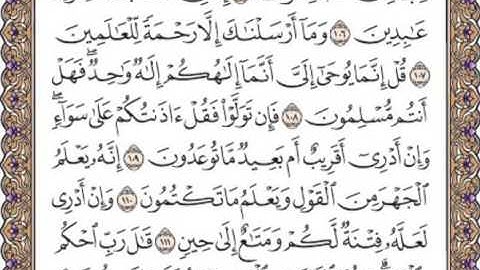 عَٰبِدِينَ ١٠٦ وَمَآ أَرۡسَلۡنَٰكَ إِلَّا رَحۡمَةٗ لِّلۡعَٰلَمِينَ
١٠٧ قُلۡ إِنَّمَا يُوحَىٰٓ إِلَيَّ أَنَّمَآ إِلَٰهُكُمۡ إِلَٰهٞ وَٰحِدٞۖ فَهَلۡ
أَنتُم مُّسۡلِمُونَ ١٠٨ فَإِن تَوَلَّوۡاْ فَقُلۡ ءَاذَنتُكُمۡ عَلَىٰ سَوَآءٖۖ
وَإِنۡ أَدۡرِيٓ أَقَرِيبٌ أَم بَعِيدٞ مَّا تُوعَدُونَ ١٠٩ إِنَّهُۥ يَعۡلَمُ
ٱلۡجَهۡرَ مِنَ ٱلۡقَوۡلِ وَيَعۡلَمُ مَا تَكۡتُمُونَ ١١٠ وَإِنۡ أَدۡرِي
لَعَلَّهُۥ فِتۡنَةٞ لَّكُمۡ وَمَتَٰعٌ إِلَىٰ حِينٖ ١١١ قَٰلَ رَبِّ ٱحۡكُم